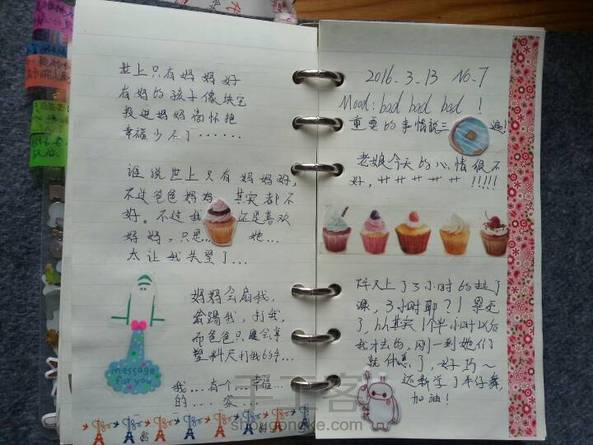 世上只有妈妈好
有妈的孩子像块宝
投进妈妈的怀抱
幸福少不了······
谁说世上只有妈妈好,
不过爸爸妈妈 其实都不
好。不过我 还是喜欢
妈妈,只是… 她…
太让我失望了…
妈妈会扇我,
会踢我,打我,
而爸爸只会拿
塑料尺打我的手…
我…有个…幸福…
的…家…
message
for you
2016.3.13 No.7
Mood: bad bad bad !
重要的事情说三 遍!
老娘今天的心情很不
好,艹艹艹艹艹!!!!!
昨天上了3小时的
课,3小时耶?!累
了,hh其实1个半小时以后
我才去的,刚一到她们
就休息了,好巧~
还新学了
加油!
shougongke.com